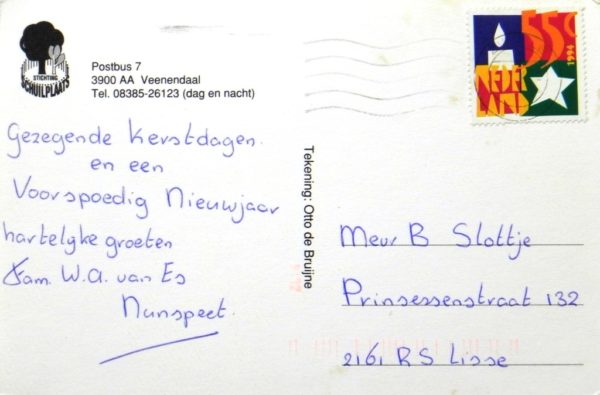 STICHTING
SCHUILPLAATS
Postbus 7
3900 AA Veenendaal
Tel. 08385-26123 (dag en nacht)
55c
1994
NEDER
LAND
Gezegende Kerstdagen.
en een
Voorspoedig Nieuwjaar
hartelijke groeten
fam. W.A. van Es
Nunspeet.
Tekening: Otto de Bruijne
Mevr B Slottje
Prinsessenstraat 132
2161 RS Lisse